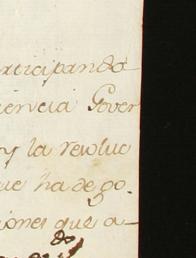 articipando
iencia Gover
y la resoluc
que ha de go-
iones que a-